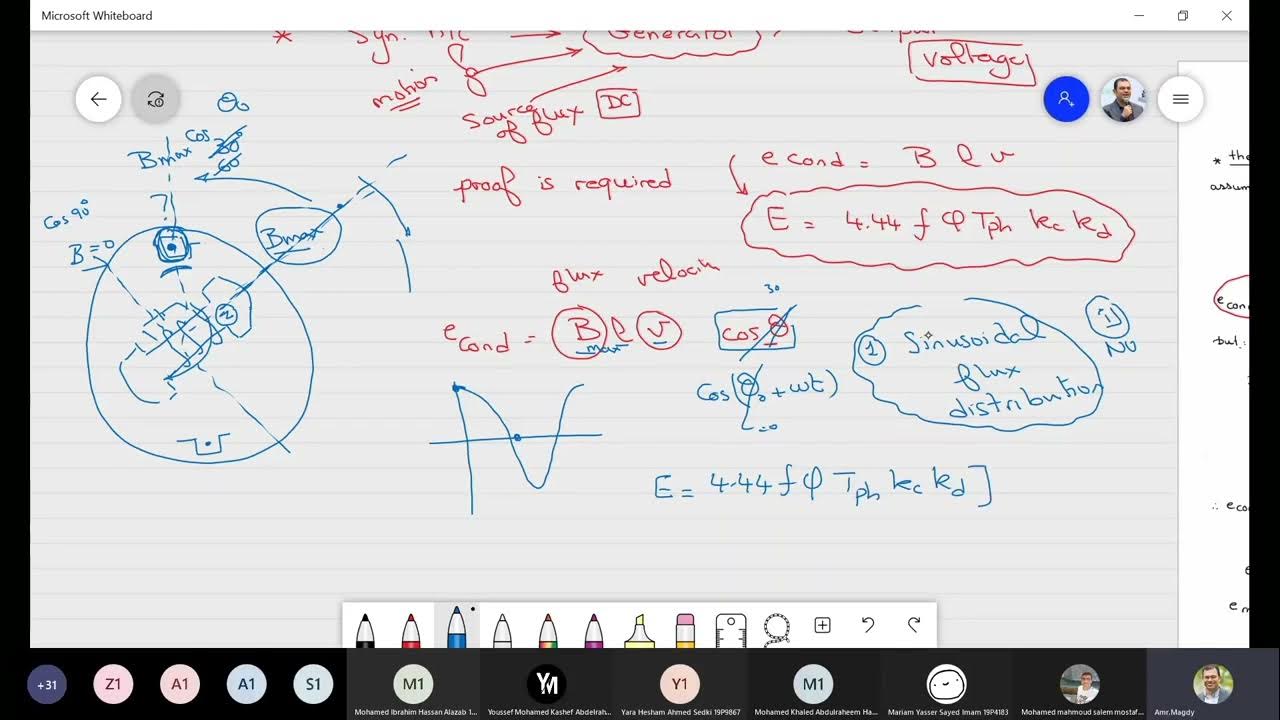 Microsoft Whiteboard
* Syn. M/C → Generator
voltage
motion
Source of flux DC
proof is required
e cond = B l v
E = 4.44 f φ Tph kc kd
flux velocity
e cond = B max l v cos θ
30
cos(θo + ωt)
=0
1 Sinusoidal
flux
distribution
E = 4.44 f φ Tph kc kd ]
θo
Bmax cos 30°
60
?!
cos 90°
B = 0
Bmax
2
* the
assum
e con
but:
∴ e co
e
e m
+31
Z1
A1
A1
S1
M1
Mohamed Ibrahim Hassan Alazab 1...
YM
Youssef Mohamed Kashef Abdelrah...
Y1
Yara Hesham Ahmed Sedki 19P9867
M1
Mohamed Khaled Abdulraheem Ha...
Mariam Yasser Sayed Imam 19P4183
Mohamed mahmoud salem mostaf...
Amr.Magdy